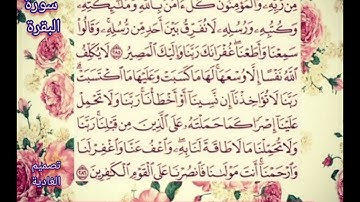 سورة
البقرة
مِن رَّبِّهِۦ وَٱلْمُؤْمِنُونَ كُلٌّ ءَامَنَ بِٱللَّهِ وَمَلَٰٓئِكَتِهِۦ
وَكُتُبِهِۦ وَرُسُلِهِۦ لَا نُفَرِّقُ بَيْنَ أَحَدٍ مِّن رُّسُلِهِۦ وَقَالُوا۟
سَمِعْنَا وَأَطَعْنَا غُفْرَانَكَ رَبَّنَا وَإِلَيْكَ ٱلْمَصِيرُ ٢٨٥ لَا يُكَلِّفُ
ٱللَّهُ نَفْسًا إِلَّا وُسْعَهَا لَهَا مَا كَسَبَتْ وَعَلَيْهَا مَا ٱكْتَسَبَتْ
رَبَّنَا لَا تُؤَاخِذْنَآ إِن نَّسِينَآ أَوْ أَخْطَأْنَا رَبَّنَا وَلَا تَحْمِلْ
عَلَيْنَآ إِصْرًا كَمَا حَمَلْتَهُۥ عَلَى ٱلَّذِينَ مِن قَبْلِنَا رَبَّنَا
وَلَا تُحَمِّلْنَا مَا لَا طَاقَةَ لَنَا بِهِۦ وَٱعْفُ عَنَّا وَٱغْفِرْ لَنَا
وَٱرْحَمْنَآ أَنتَ مَوْلَىٰنَا فَٱنصُرْنَا عَلَى ٱلْقَوْمِ ٱلْكَٰفِرِينَ ٢٨٦
تصميم
الغادية